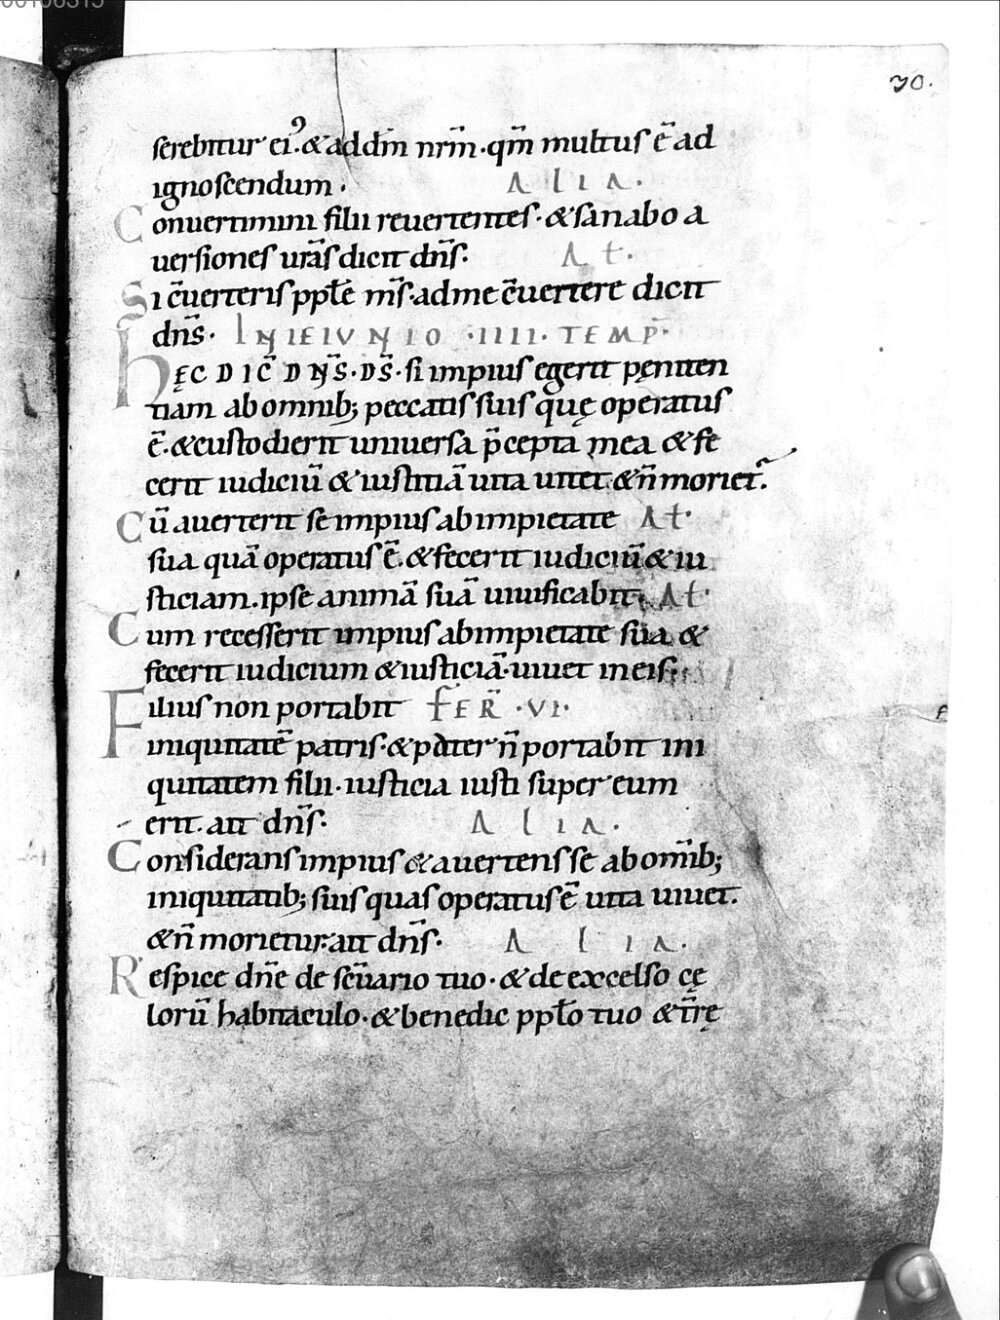 30.
serebitur ei. & ad dm̄ nrm̄. qm̄ multus ē ad
ignoscendum. ALIA.
Conuertimini filii reuertentes. & sanabo a
uersiones urās dicit dn̄s. At.
Si c̄uerteris ppłe m̄s. ad me c̄uertere dicit
dn̄s. IN IEIVNIO .IIII. TEMP̄.
hęC DIC̄ DN̄S. D̄S. si impius egerit pęniten
tiam ab omnib; peccatis suis quę operatus
ē. & custodierit uniuersa p̄cepta mea & fe
cerit iudiciū & iustitiā uita uiuet. & n̄ moriet.
Cū auerterit se impius ab impietate At.
sua quā operatus ē. & fecerit iudiciū & iu
sticiam. ipse animā suā uiuificabit. At.
Cum recesserit impius ab impietate sua &
fecerit iudicium & iusticiā. uiuet in eis.
Filius non portabit FER̄. VI.
iniquitatē patris. & pater n̄ portabit ini
quitatem filii. iusticia iusti super eum
erit. ait dn̄s. ALIA.
Considerans impius & auertens se ab om̄ib;
iniquitatib; suis quas operatus ē uita uiuet.
& n̄ morietur. ait dn̄s. ALIA.
Respice dn̄e de sc̄uario tuo. & de excelso cę
lorū habitaculo. & benedic ppło tuo & t̄rę